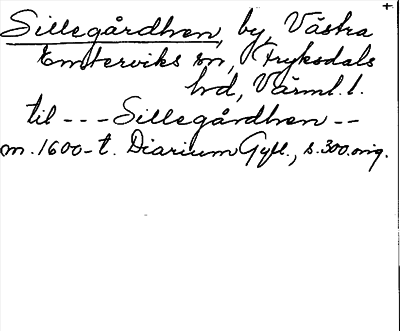 +
Sillegårdhen, by, Västra
Emterviks sn, Fryksdals
hd, Värml. l.
til - - - Sillegårdhen - -
m. 1600-t. Diarium Gyll., s. 300. orig.